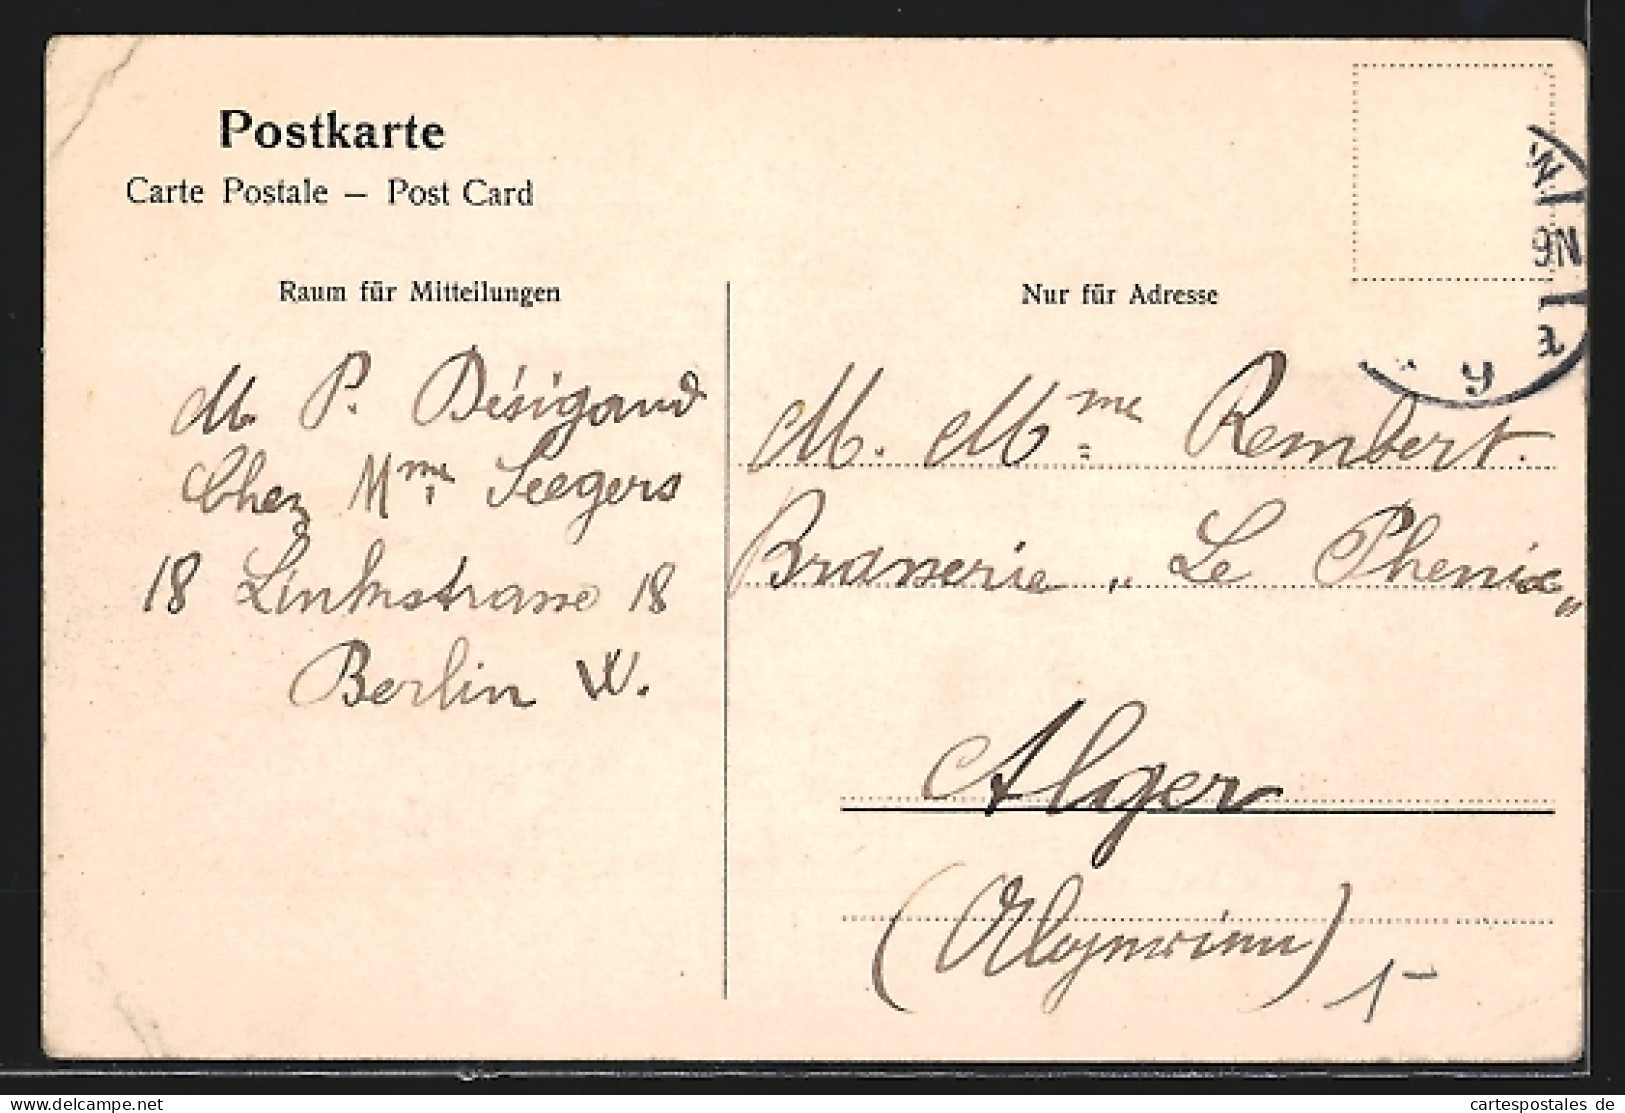 Postkarte
Carte Postale — Post Card
Raum für Mitteilungen
M P. Désigaud
Chez Mme Seegers
18 Linkstrasse 18
Berlin W.
Nur für Adresse
M. Mme Rembert.
Brasserie „ Le Phenix "
Alger
(Algerien)
cartespostales de